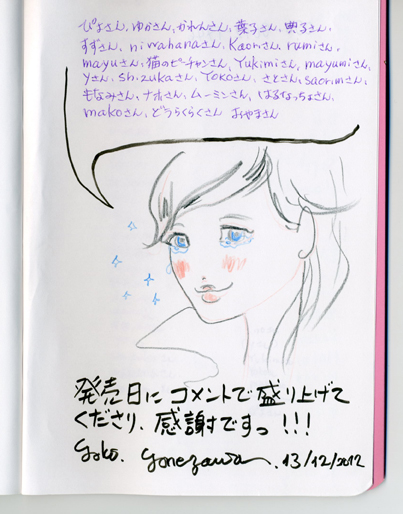 ぴよさん、ゆかさん、かれんさん、葉子さん、典子さん、
すずさん、niwahanaさん、Kaoriさん、rumiさん、
mayuさん、猫のピーチャンさん、Yukimiさん、mayumiさん、
yさん、shizukaさん、YOKOさん、さとさん、saorinさん、
もなみさん、ナホさん、ムーミンさん、はるなっちょさん、
makoさん、どうらくらくさん おやまさん
発売日にコメントで盛り上げて
くださり、感謝ですっ!!!
Yoko. Yonezawa. 13/12/2012